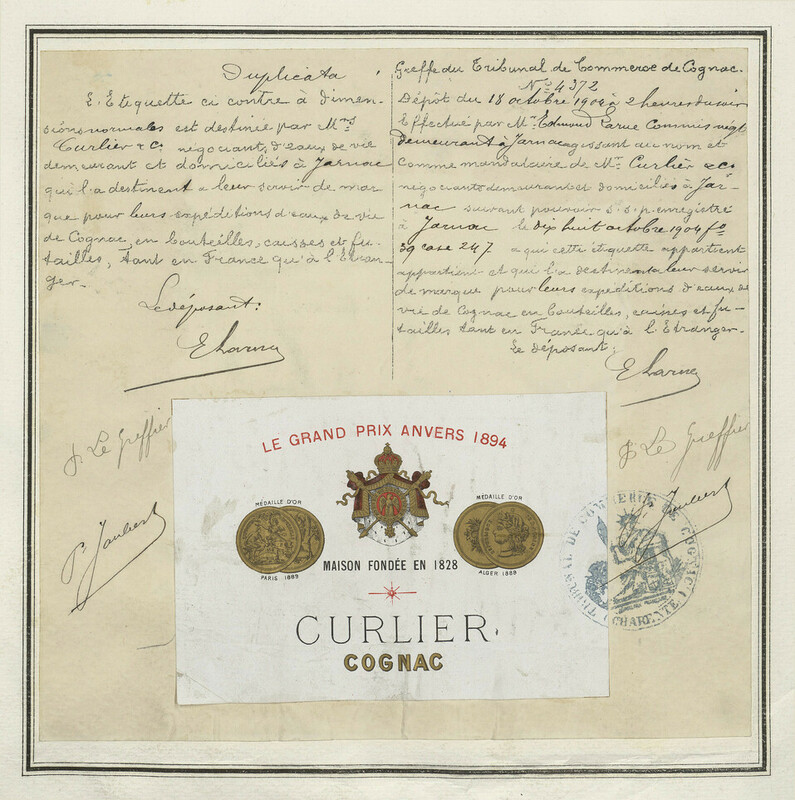 Duplicata
L'Etiquette ci contre à dimen-
sions normales est destinée par Mrs
Curlier & Co négociants d'eaux de vie
demeurant et domiciliés à Jarnac
qui l'a destinent a leur servir de mar
que pour leurs expéditions d'eaux de vie
de Cognac, en bouteilles, caisses et fu-
tailles, tant en France qu'à l'Etran-
ger.
Le déposant:
E Larue
P. Le Greffier
P. Jaubert
Greffe du Tribunal de Commerce de Cognac.
No 4372
Dépôt du 18 octobre 1904 à 2 heures du soir
Effectué par Mr Edmond Larue Commis négt
demeurant à Jarnac agissant au nom et
comme mandataire de Mrs Curlier & Co
negociants demeurant et domiciliés à Jar-
nac suivant pouvoir s.s.p. enregistré
à Jarnac le dix huit octobre 1904 fo
39 case 247 a qui cette étiquette appartient
appartient et qui l'a destinent a leur servir
de marque pour leurs expéditions d'eaux de
vie de Cognac en bouteilles, caisses et fu-
tailles tant en France qu'à l'Etranger.
Le déposant,
E Larue
P. Le Greffier
P. Jaubert
LE GRAND PRIX ANVERS 1894
MÉDAILLE D'OR
PARIS 1889
MÉDAILLE D'OR
ALGER 1889
MAISON FONDÉE EN 1828
CURLIER
COGNAC
TRIBUNAL DE COMMERCE DE COGNAC
(CHARENTE)